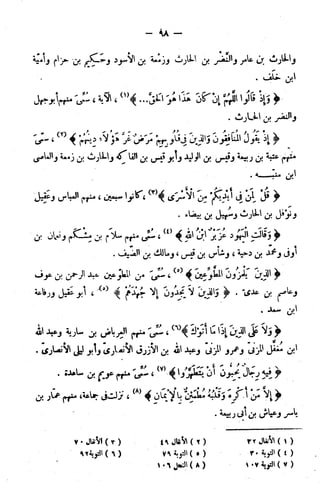 — ٩٨ —
والحارث بن عامر والنضر بن الحارث وزمعة بن الأسود وحكيم بن حزام وأمية
ابن خلف .
﴿ وَإِذْ قَالُوا اللَّهُمَّ إِنْ كَانَ هَذَا هُوَ الْحَقَّ... ﴾(١) ، الآية ، سمى منهم أبو جهل
والنضر بن الحارث .
﴿ إِذْ يَقُولُ الْمُنَافِقُونَ وَالَّذِينَ فِي قُلُوبِهِمْ مَرَضٌ غَرَّ هَؤُلَاءِ دِينُهُمْ ﴾(٢) ، سمى
منهم عتبة بن ربيعة وقيس بن الوليد وأبو قيس بن الفاكه والحارث بن زمعة والعاصى
ابن منبه .
﴿ قُلْ لِمَنْ فِي أَيْدِيكُمْ مِنَ الْأَسْرَى ﴾(٣) ، كانوا سبعين ، منهم العباس وعقيل
ونوفل بن الحارث وسهيل بن بيضاء .
﴿ وَقَالَتِ الْيَهُودُ عُزَيْرٌ ابْنُ اللَّهِ ﴾(٤) ، سمى منهم سلام بن مشكم ونعمان بن
أوفى ومحمد بن دحية ، وشاس بن قيس ، ومالك بن الصيف .
﴿ الَّذِينَ يَلْمِزُونَ الْمُطَّوِّعِينَ ﴾(٥) ، سمى من المطوعين عبد الرحمن بن عوف
وعاصم بن عدى . ﴿ وَالَّذِينَ لَا يَجِدُونَ إِلَّا جُهْدَهُمْ ﴾(٥) ، أبو عقيل ورفاعة
ابن سعد .
﴿ وَلَا عَلَى الَّذِينَ إِذَا مَا أَتَوْكَ ﴾(٦) ، سمى منهم العرباض بن سارية وعبد الله
ابن مغفل المزنى وعمرو المزنى وعبد الله بن الأزرق الأنصارى وأبو ليلى الأنصارى .
﴿ فِيهِ رِجَالٌ يُحِبُّونَ أَنْ يَتَطَهَّرُوا ﴾(٧) ، سمى منهم عويم بن ساعدة .
﴿ إِلَّا مَنْ أُكْرِهَ وَقَلْبُهُ مُطْمَئِنٌّ بِالْإِيمَانِ ﴾(٨) ، نزلت فى جماعة ، منهم عمار بن
ياسر وعياش بن أبى ربيعة .
( ١ ) الأنفال ٣٢ ( ٢ ) الأنفال ٤٩ ( ٣ ) الأنفال ٧٠
( ٤ ) التوبة ٣٠ ( ٥ ) التوبة ٧٩ ( ٦ ) التوبة ٩٢
( ٧ ) التوبة ١٠٧ ( ٨ ) النحل ١٠٦